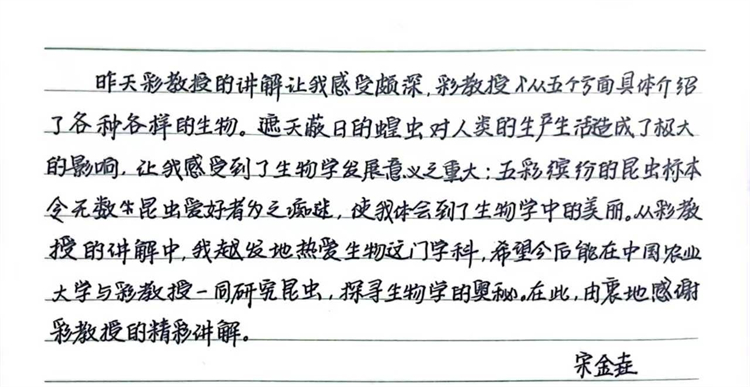 昨天彩教授的讲解让我感受颇深,彩教授从五个方面具体介绍
了各种各样的生物。遮天蔽日的蝗虫对人类的生产生活造成了极大
的影响,让我感受到了生物学发展意义之重大;五彩缤纷的昆虫标本
令无数昆虫爱好者为之痴迷,使我体会到了生物学中的美丽。从彩教
授的讲解中,我越发地热爱生物这门学科,希望今后能在中国农业
大学与彩教授一同研究昆虫,探寻生物学的奥秘。在此,由衷地感谢
彩教授的精彩讲解。
宋金垚